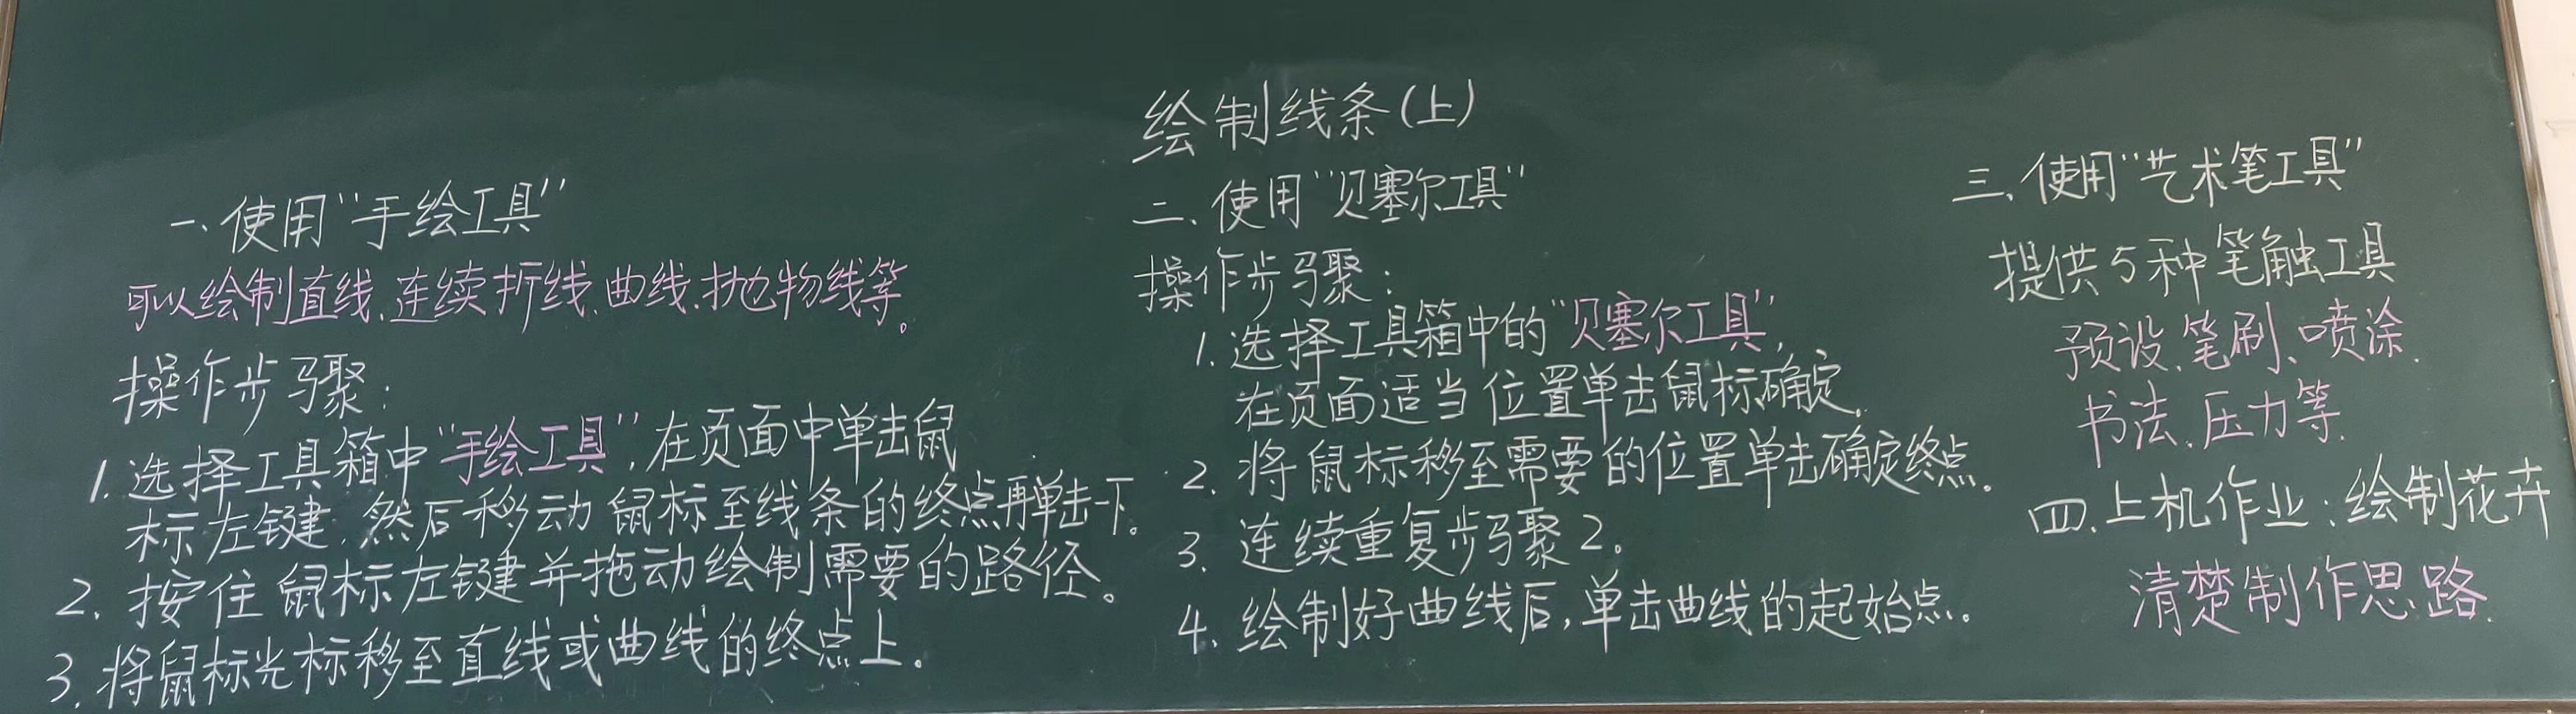 绘制线条(上)
一、使用"手绘工具"
可以绘制直线、连续折线、曲线、抛物线等。
操作步骤：
1. 选择工具箱中"手绘工具"，在页面中单击鼠
标左键，然后移动鼠标至线条的终点再单击一下。
2. 按住鼠标左键并拖动绘制需要的路径。
3. 将鼠标光标移至直线或曲线的终点上。
二、使用"贝塞尔工具"
操作步骤：
1. 选择工具箱中的"贝塞尔工具"，
在页面适当位置单击鼠标确定。
2. 将鼠标移至需要的位置单击确定终点。
3. 连续重复步骤2。
4. 绘制好曲线后，单击曲线的起始点。
三、使用"艺术笔工具"
提供5种笔触工具
预设、笔刷、喷涂、
书法、压力等.
四、上机作业：绘制花卉
清楚制作思路.